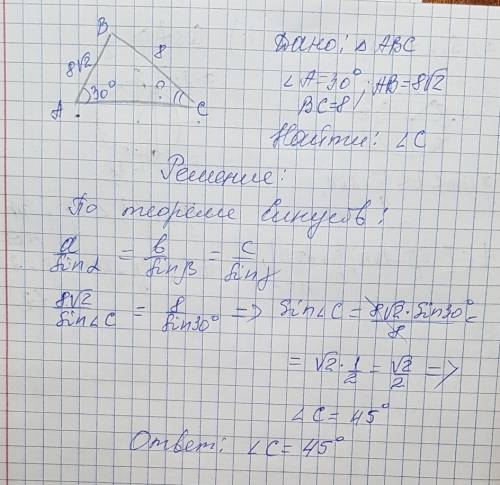 B
8√2
8
A
30°
?
C
Дано: △ ABC
∠A=30°; AB=8√2
BC=8
Найти: ∠C
Решение:
По теореме синусов:
a/sinα = b/sinβ = c/sinγ
8√2/sin∠C = 8/sin30° => sin∠C = 8√2·sin30°/8 =
= √2·1/2 = √2/2 =>
∠C = 45°
Ответ: ∠C = 45°